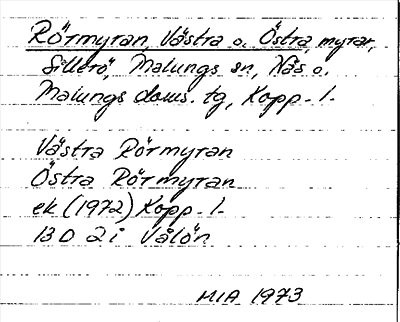 Rörmyran, Västra o. Östra, myrar,
Sillerö, Malungs sn, Näs o.
Malungs doms. tg, Kopp. l.
Västra Rörmyran
Östra Rörmyran
ek (1972) Kopp. l.
13 D 2 i Vålön
MIA 1973